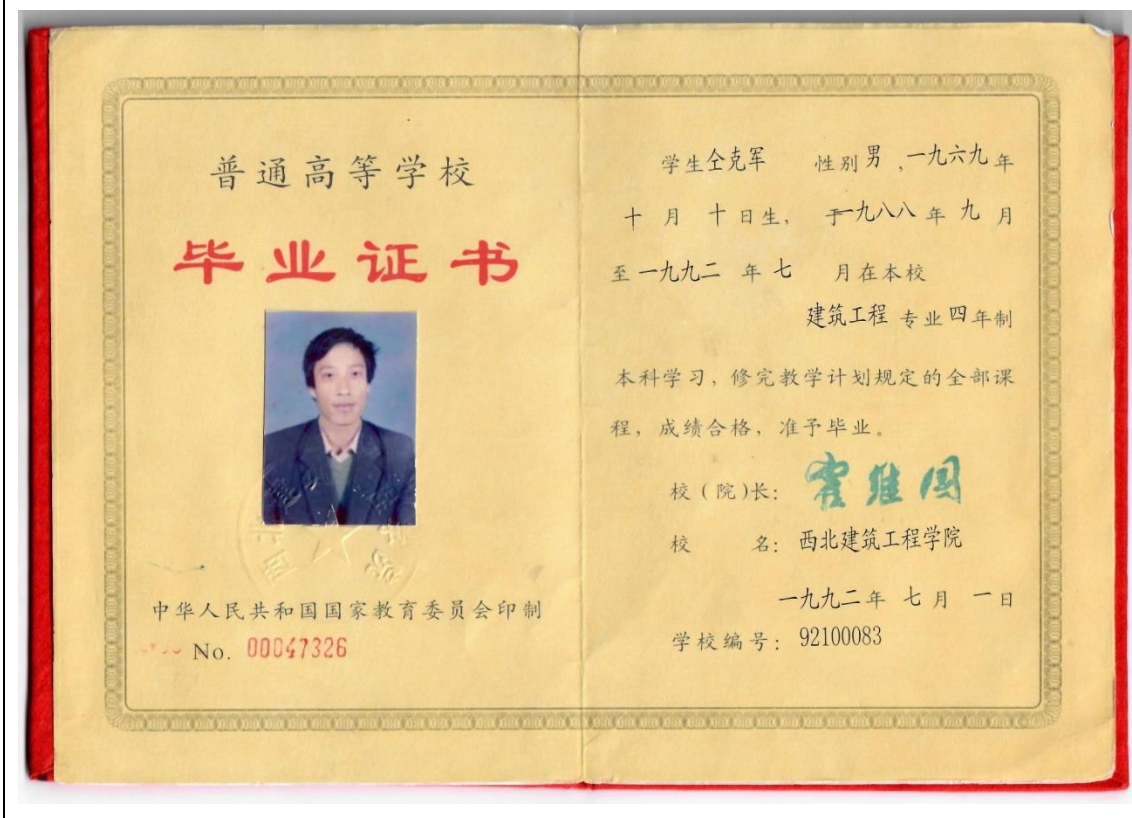 普通高等学校
毕业证书
中华人民共和国国家教育委员会印制
No. 00047326
学生仝克军 性别男,一九六九年
十月十日生,于一九八八年九月
至一九九二年七月在本校
建筑工程专业四年制
本科学习,修完教学计划规定的全部课
程,成绩合格,准予毕业。
校(院)长:霍维国
校 名:西北建筑工程学院
一九九二年七月一日
学校编号:92100083